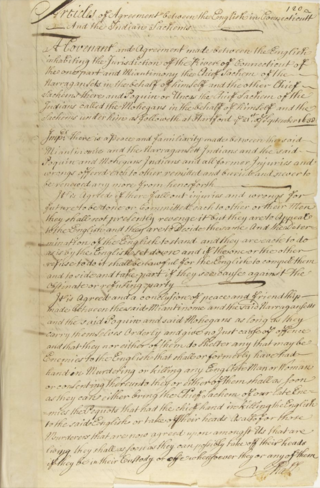 Articles of Agreement between the English in Connecticutt
And the Indian Sachems
A Covenant and Agreement made between the English
inhabiting the Jurisdiction of the River of Connecticut of
the one part and Miantinomy the Chief Sachem of the
Narragansets in the behalf of himself and the other Chief
Sachems there and Poquim or Uncas the Chief Sachem of the
Indians called the Mohegans in the behalf of himself and the
Sachems under him as followeth at Hartford 21st of September 1638
Imprs there is a Peace and familiarity made between the said
Miantinomie and the Narraganset Indians and the said
Poquim and Mohegans Indians and all former Injuries and
wrongs offered each to other remitted and buried and never to
be renewed any more from henceforth
It is Agreed if there fall out injuries and wrongs for
future to be done or committed Each to other or their Men
they shall not presently revenge it but they are to Appeal
to the English and they are to Decide the same. And the
of the English to stand and they are each to do
as is by the English Set down and if the one or the other
refuse to do it shall be lawful for the English to compell them
and to side and take part if they see cause against the
Obstinate or refusing party
It is Agreed and a conclusion of peace and friendship
made between the said Miantinomi and the said Narragansetts
and the said Poquim and said Mohegans as long as they
carry themselves Orderly and give no Just cause of Offence
and that they nor either of them do Shelter any that may be
Enemies to the English that shall or formerly have had
hand in Murdering or killing any English Man or Woman
or consenting thereunto they or Either of them shall as soon
as they can either bring the Chief Sachem of our Late
the Pequots that had the chief hand in killing the English
to the said English or take off their heads As also for those
Murderers that are now agreed upon amongst Us that are
living they shall as soon as they can possibly take off their heads
if they be in their Custody or Else whensoever they or any of them
Shall